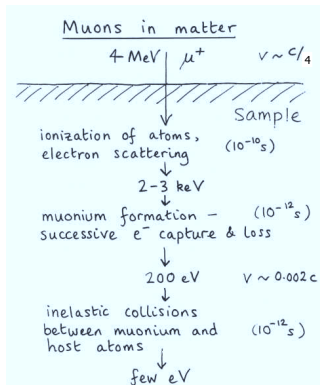 Muons in matter
4 MeV μ⁺ v ~ c/4
Sample
ionization of atoms,
electron scattering (10⁻¹⁰s)
2-3 keV
muonium formation – (10⁻¹²s)
successive e⁻ capture & loss
200 eV v ~ 0.002c
inelastic collisions
between muonium and (10⁻¹²s)
host atoms
few eV